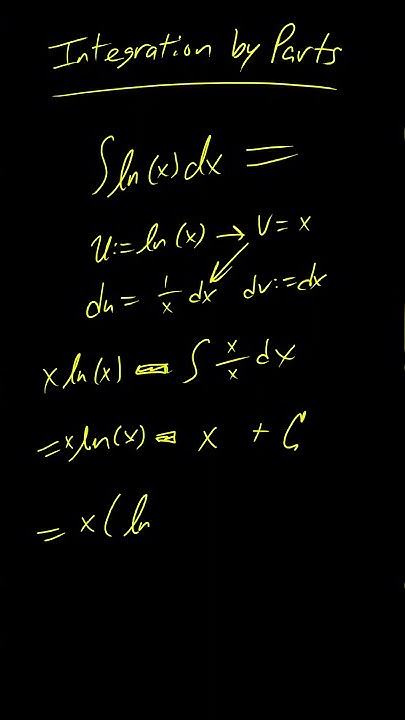 Integration by Parts
∫ln(x)dx =
u:=ln(x) → v=x
du= 1/x dx dv:=dx
x ln(x) - ∫ x/x dx
=x ln(x) - x + C
= x(ln